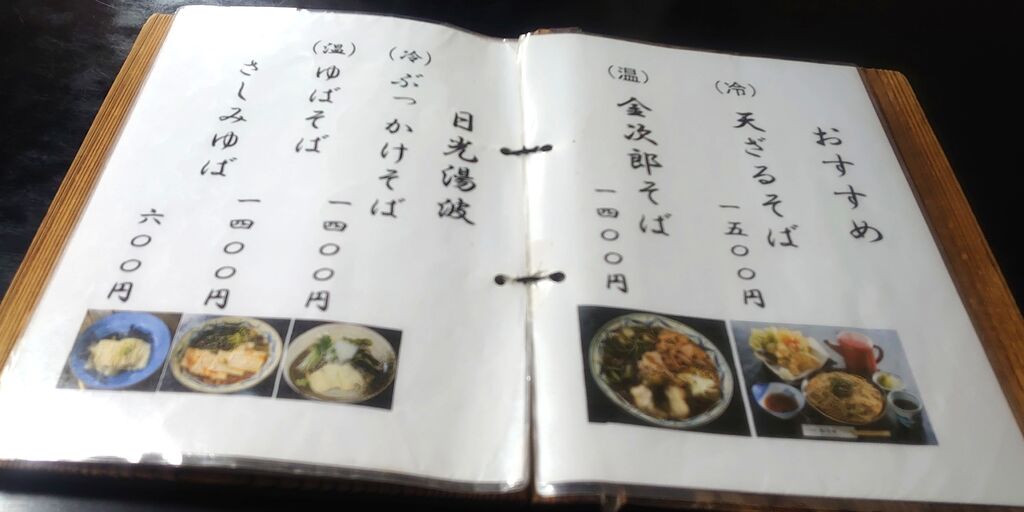 おすすめ
(冷)天ざるそば
一五〇〇円
(温)金次郎そば
一四〇〇円
日光湯波
(冷)ぶっかけそば
一四〇〇円
(温)ゆばそば
一四〇〇円
さしみゆば
六〇〇円